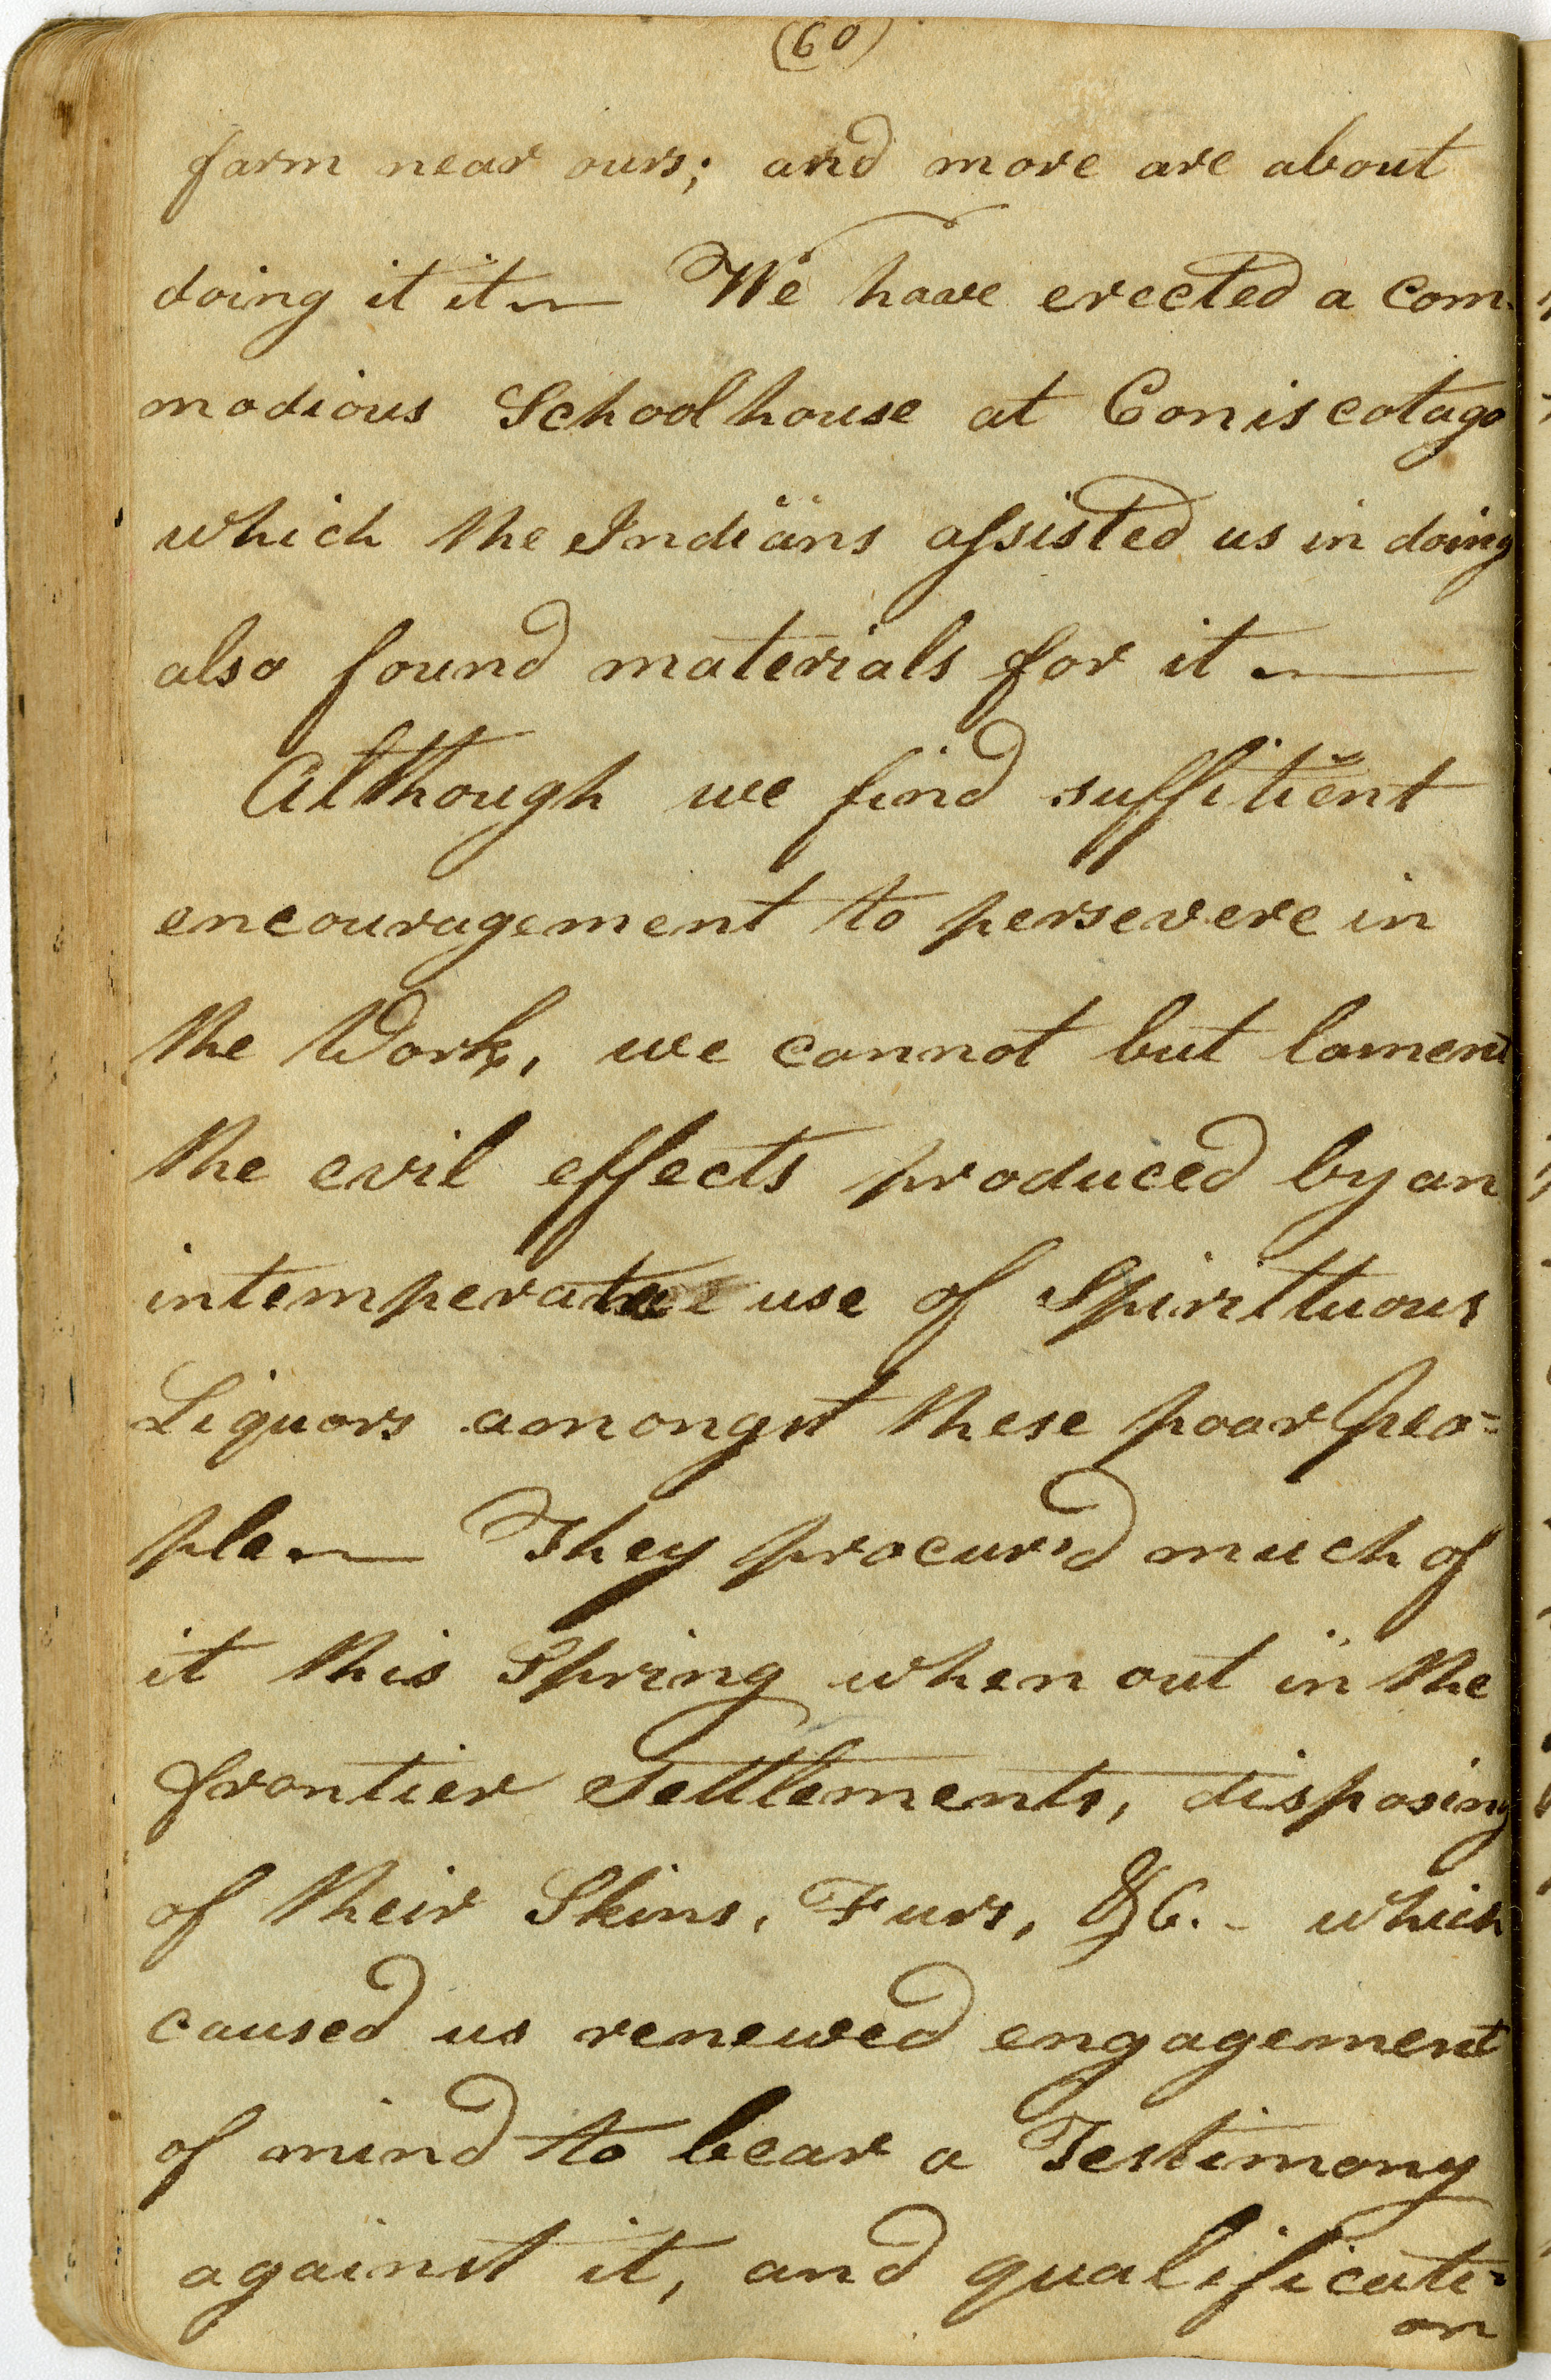 (60)
farm near ours; and more are about
doing it it — We have erected a com-
modious Schoolhouse at Coniscotago
which the Indians assisted us in doing
also found materials for it —
Although we find suffitient
encouragement to persevere in
the Work, we cannot but lament
the evil effects produced by an
intemperate use of Spirittuous
Liquors amongst these poor peo=
ple — They procur'd much of
it this Spring when out in the
frontier Settlements, disposing
of their Skins, Furs, &C. - which
caused us renewed engagement
of mind to bear a Testimony
against it, and qualificati=
on